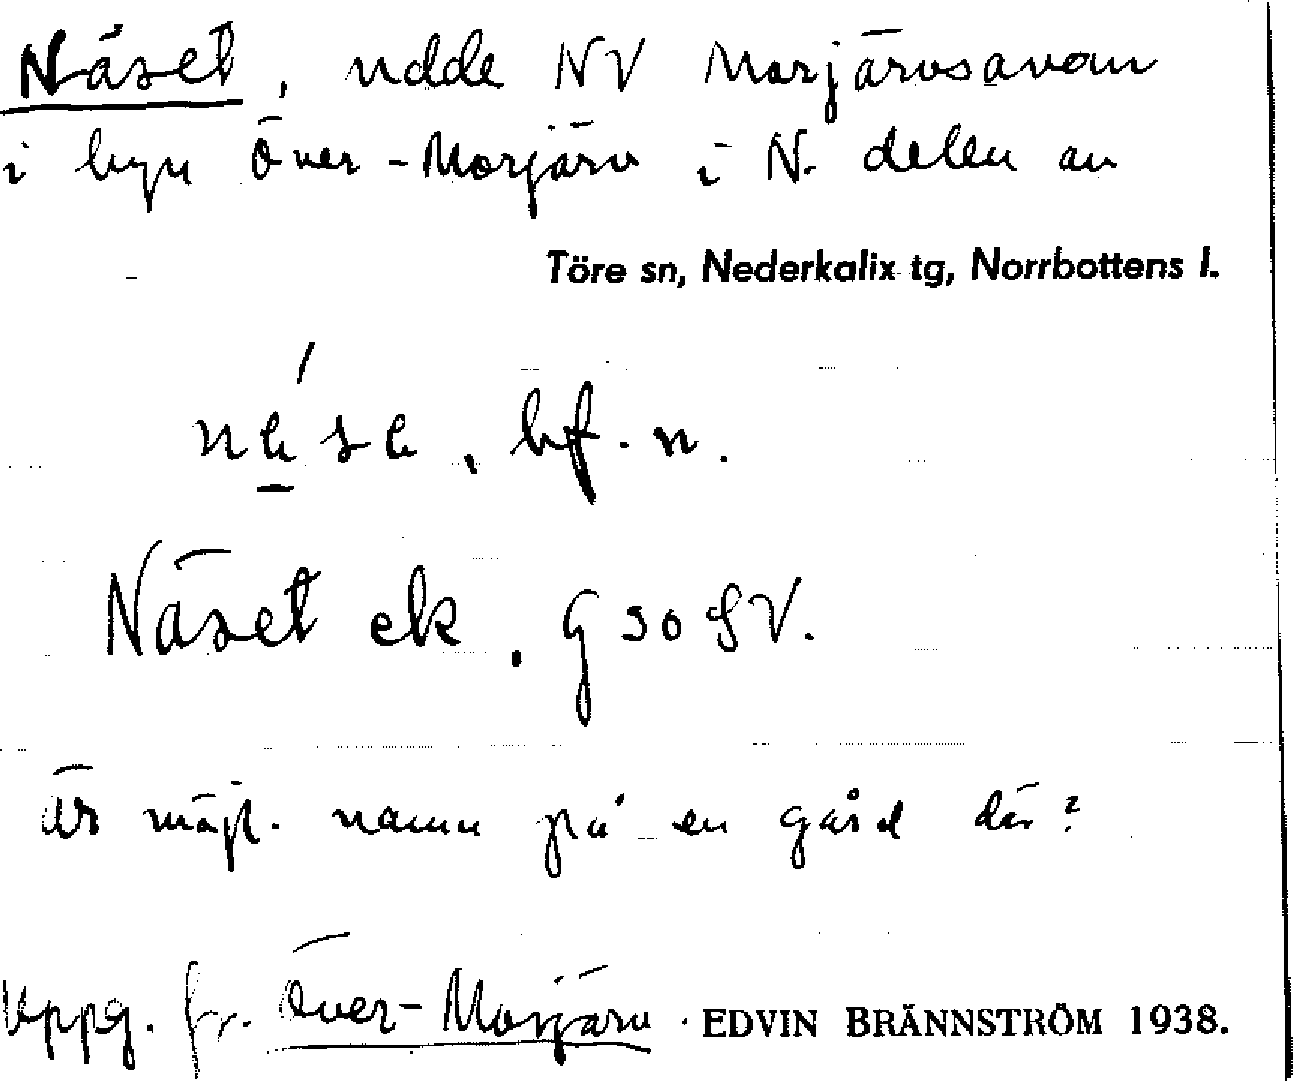 Näset, udde NV Morjärvsavan
i byn Över-Morjärv i N. delen av
Töre sn, Nederkalix tg, Norrbottens l.
bf. n.
Näset ek. G 30 SV.
Är möjl. namn på en gård där?
Uppg. fr. Över-Morjärv. EDVIN BRÄNNSTRÖM 1938.